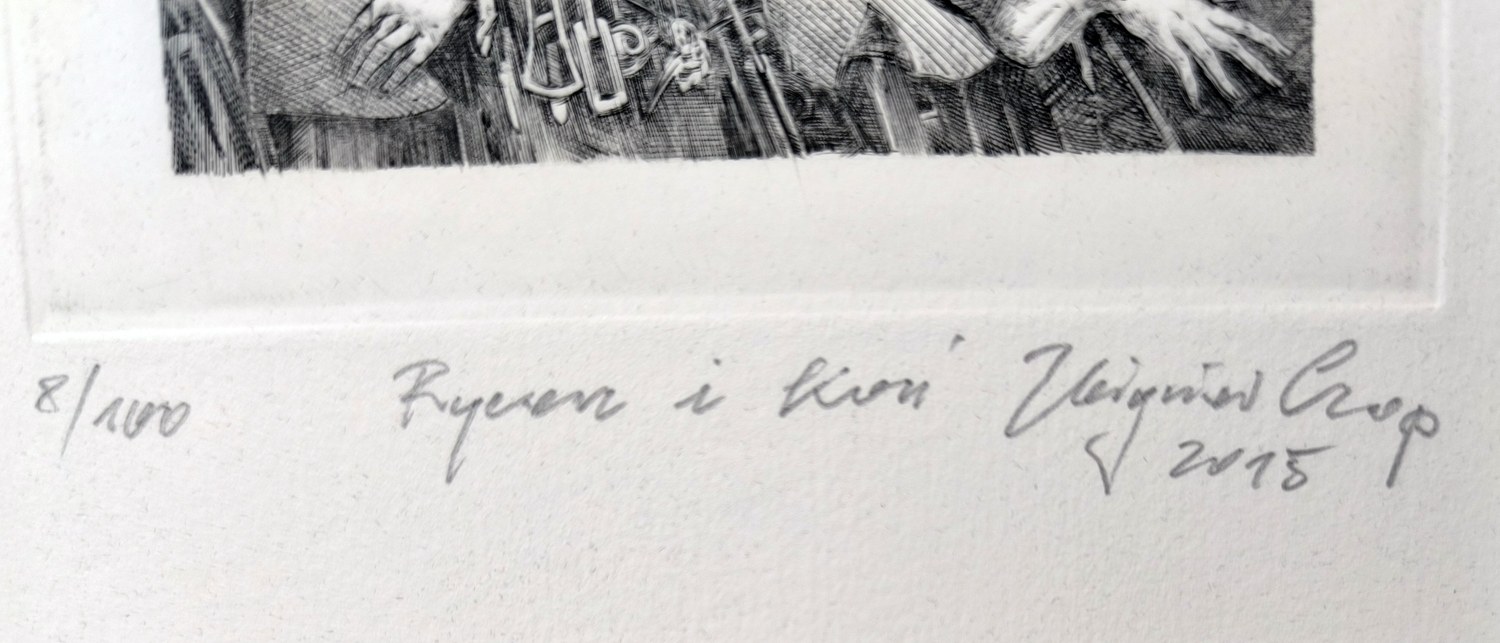 8/100 Rycerz i koń Zbigniew Czop
2015